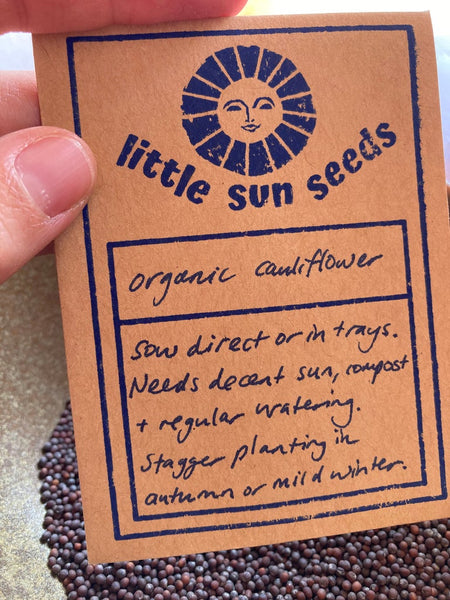 little sun seeds
organic cauliflower
sow direct or in trays.
Needs decent sun, compost
+ regular watering.
Stagger planting in
autumn or mild winter.